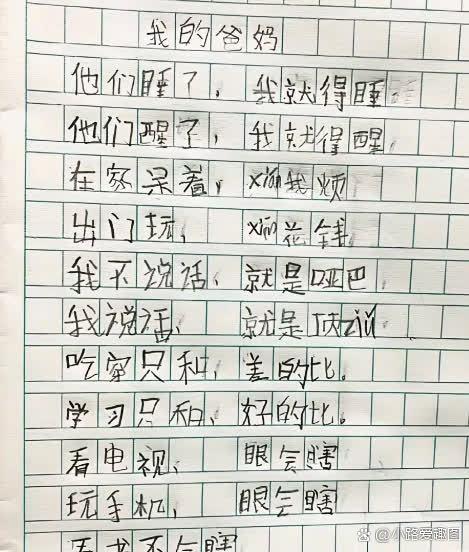 我的爸妈
他们睡了，我就得睡
他们醒了，我就得醒
在家呆着，xián我烦
出门玩，xián花钱
我不说话，就是哑巴
我说话，就是顶zuǐ
吃穿只和，差的比。
学习只和，好的比。
看电视，眼会瞎
玩手机，眼会瞎
看书不会瞎
@小路爱趣图